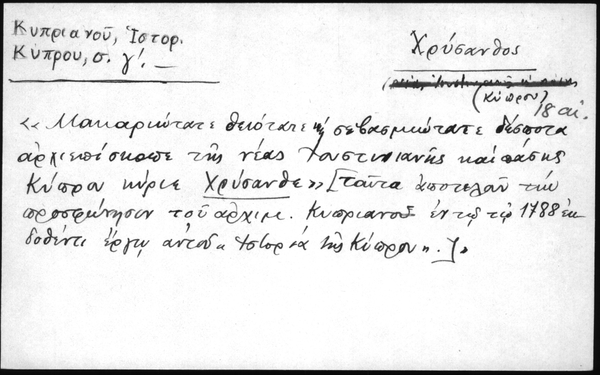 Κυπριανοῦ, Ἱστορ.
Κύπρου, σ. γ´. —
Χρύσανθος
(Κύπρου) 18 αἰ.
«Μακαριώτατε θειότατε καὶ σεβασμιώτατε δέσποτα
ἀρχιεπίσκοπε τῆς νέας Ἰουστινιανῆς καὶ πάσης
Κύπρου κύριε Χρύσανθε» [ταῦτα ἀποτελοῦν τὴν
προσφώνησιν τοῦ ἀρχιμ. Κυπριανοῦ ἐν τῷ τῷ 1788 ἐκ-
δοθέντι ἔργῳ αὐτοῦ «Ἱστορία τῆς Κύπρου».]